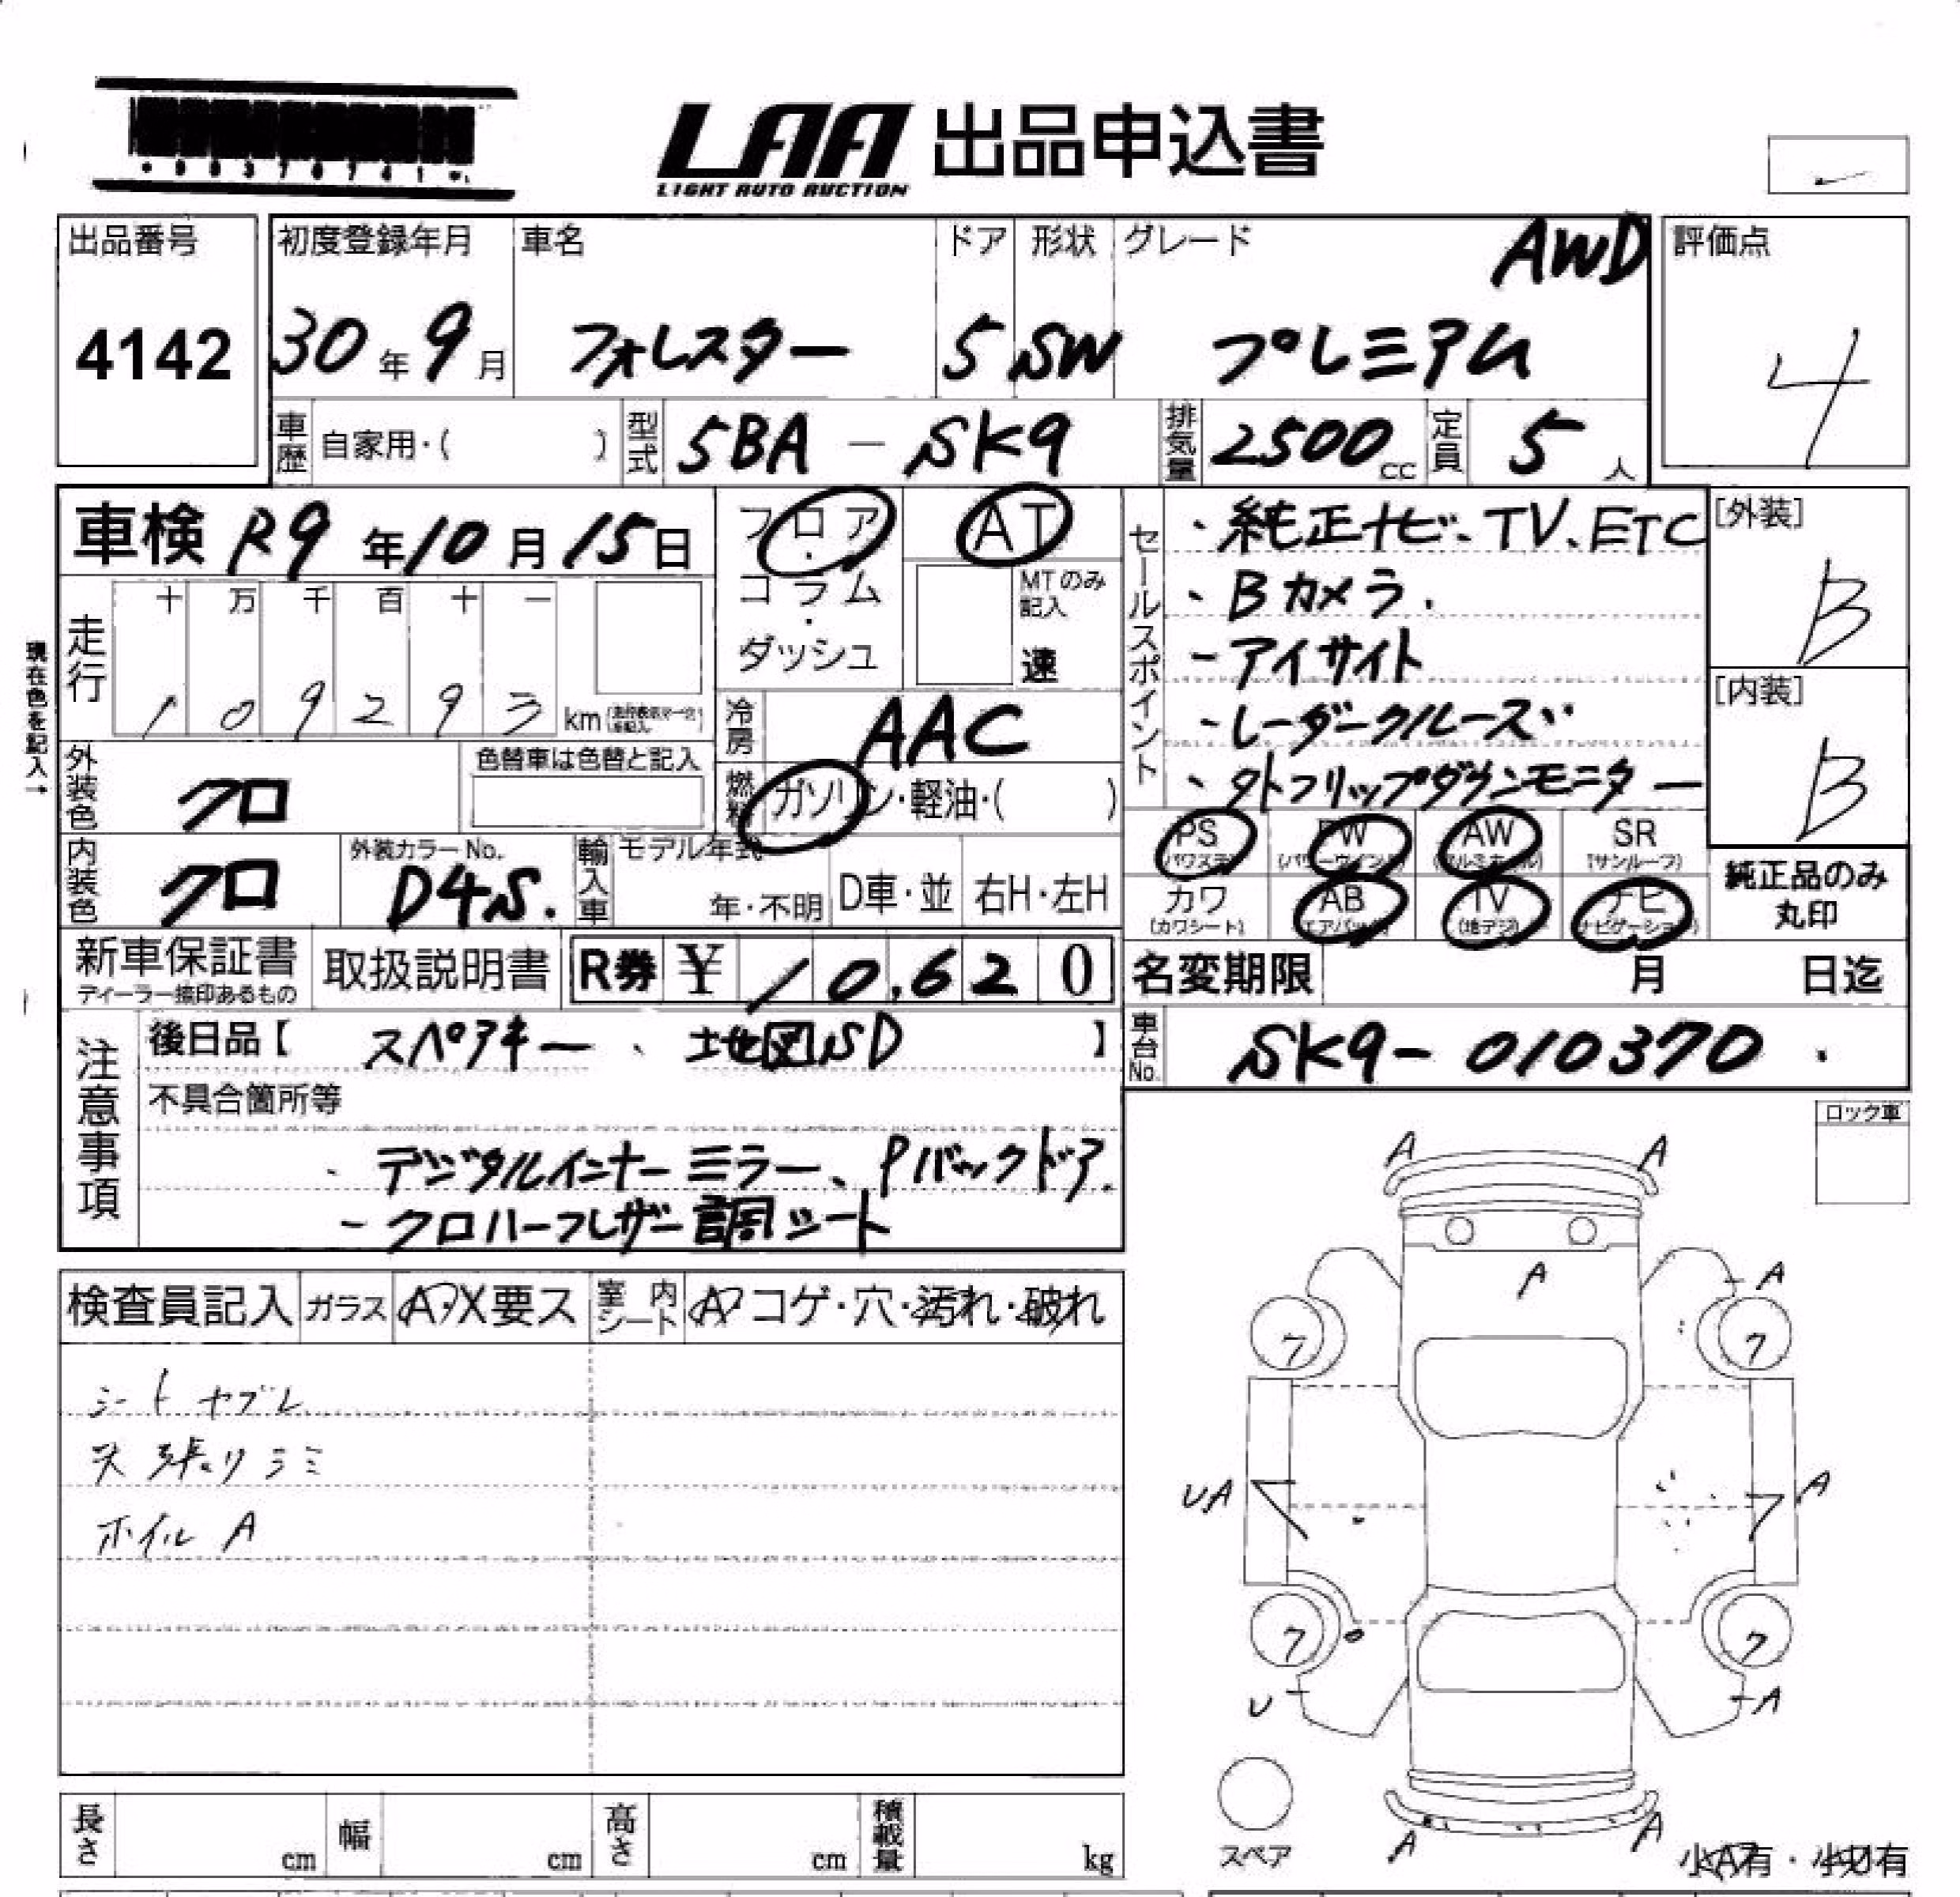 LAA 出品申込書
LIGHT AUTO AUCTION
出品番号 4142
初度登録年月 30年9月
車名 フォレスター
ドア 5
形状 SW
グレード AWD
プレミアム
評価点 4
車歴 自家用・( )
型式 5BA - SK9
排気量 2500cc
定員 5人
車検 R9年10月15日
フロア・コラム・ダッシュ
AT
MTのみ記入
速
セールスポイント
・純正ナビ、TV、ETC
・Bカメラ.
-アイサイト
-レーダークルーズ
[外装] B
[内装] B
現在色を記入→
走行 十 万 千 百 十 一
1 0 9 2 9 3 km
冷房 AAC
燃料 ガソリン・軽油・( )
外装色 クロ
色替車は色替と記入
内装色 クロ
外装カラーNo. D4S.
輸入車 モデル年式
年・不明
D車・並
右H・左H
PS (パワステ)
PW (パワーウインド)
AW (アルミホイル)
SR (サンルーフ)
カワ (カワシート)
AB (エアバック)
TV (地デジ)
ナビ (ナビゲーション)
純正品のみ丸印
新車保証書
ディーラー捺印あるもの
取扱説明書
R券 ¥ 10,620
名変期限 月 日迄
車台No. SK9- 010370
注意事項
後日品【 スペアキー、地図SD 】
不具合箇所等
・デジタルインナーミラー、Pバックドア.
-クロハーフレザー調シート
検査員記入
ガラス A・X要ス
室内シート A コゲ・穴・汚れ・破れ
シートヤブレ
天張りシミ
ホイルA
ロック車
A A
A
A
7 7
UA A
7 7
U A
A A
スペア
小A有・小U有
長さ cm
幅 cm
高さ cm
積載量 kg